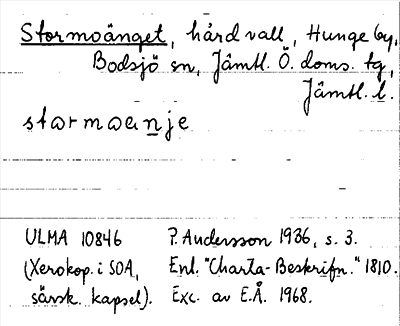 Stormoänget, hård vall, Hunge by,
Bodsjö sn, Jämtl. Ö. doms. tg,
Jämtl. l.
stormoænje
ULMA 10846 P. Andersson 1936, s. 3.
(Xerokop. i SOA, Enl. "Charta-Beskrifn." 1810.
särsk. kapsel). Exc. av E.Å. 1968.